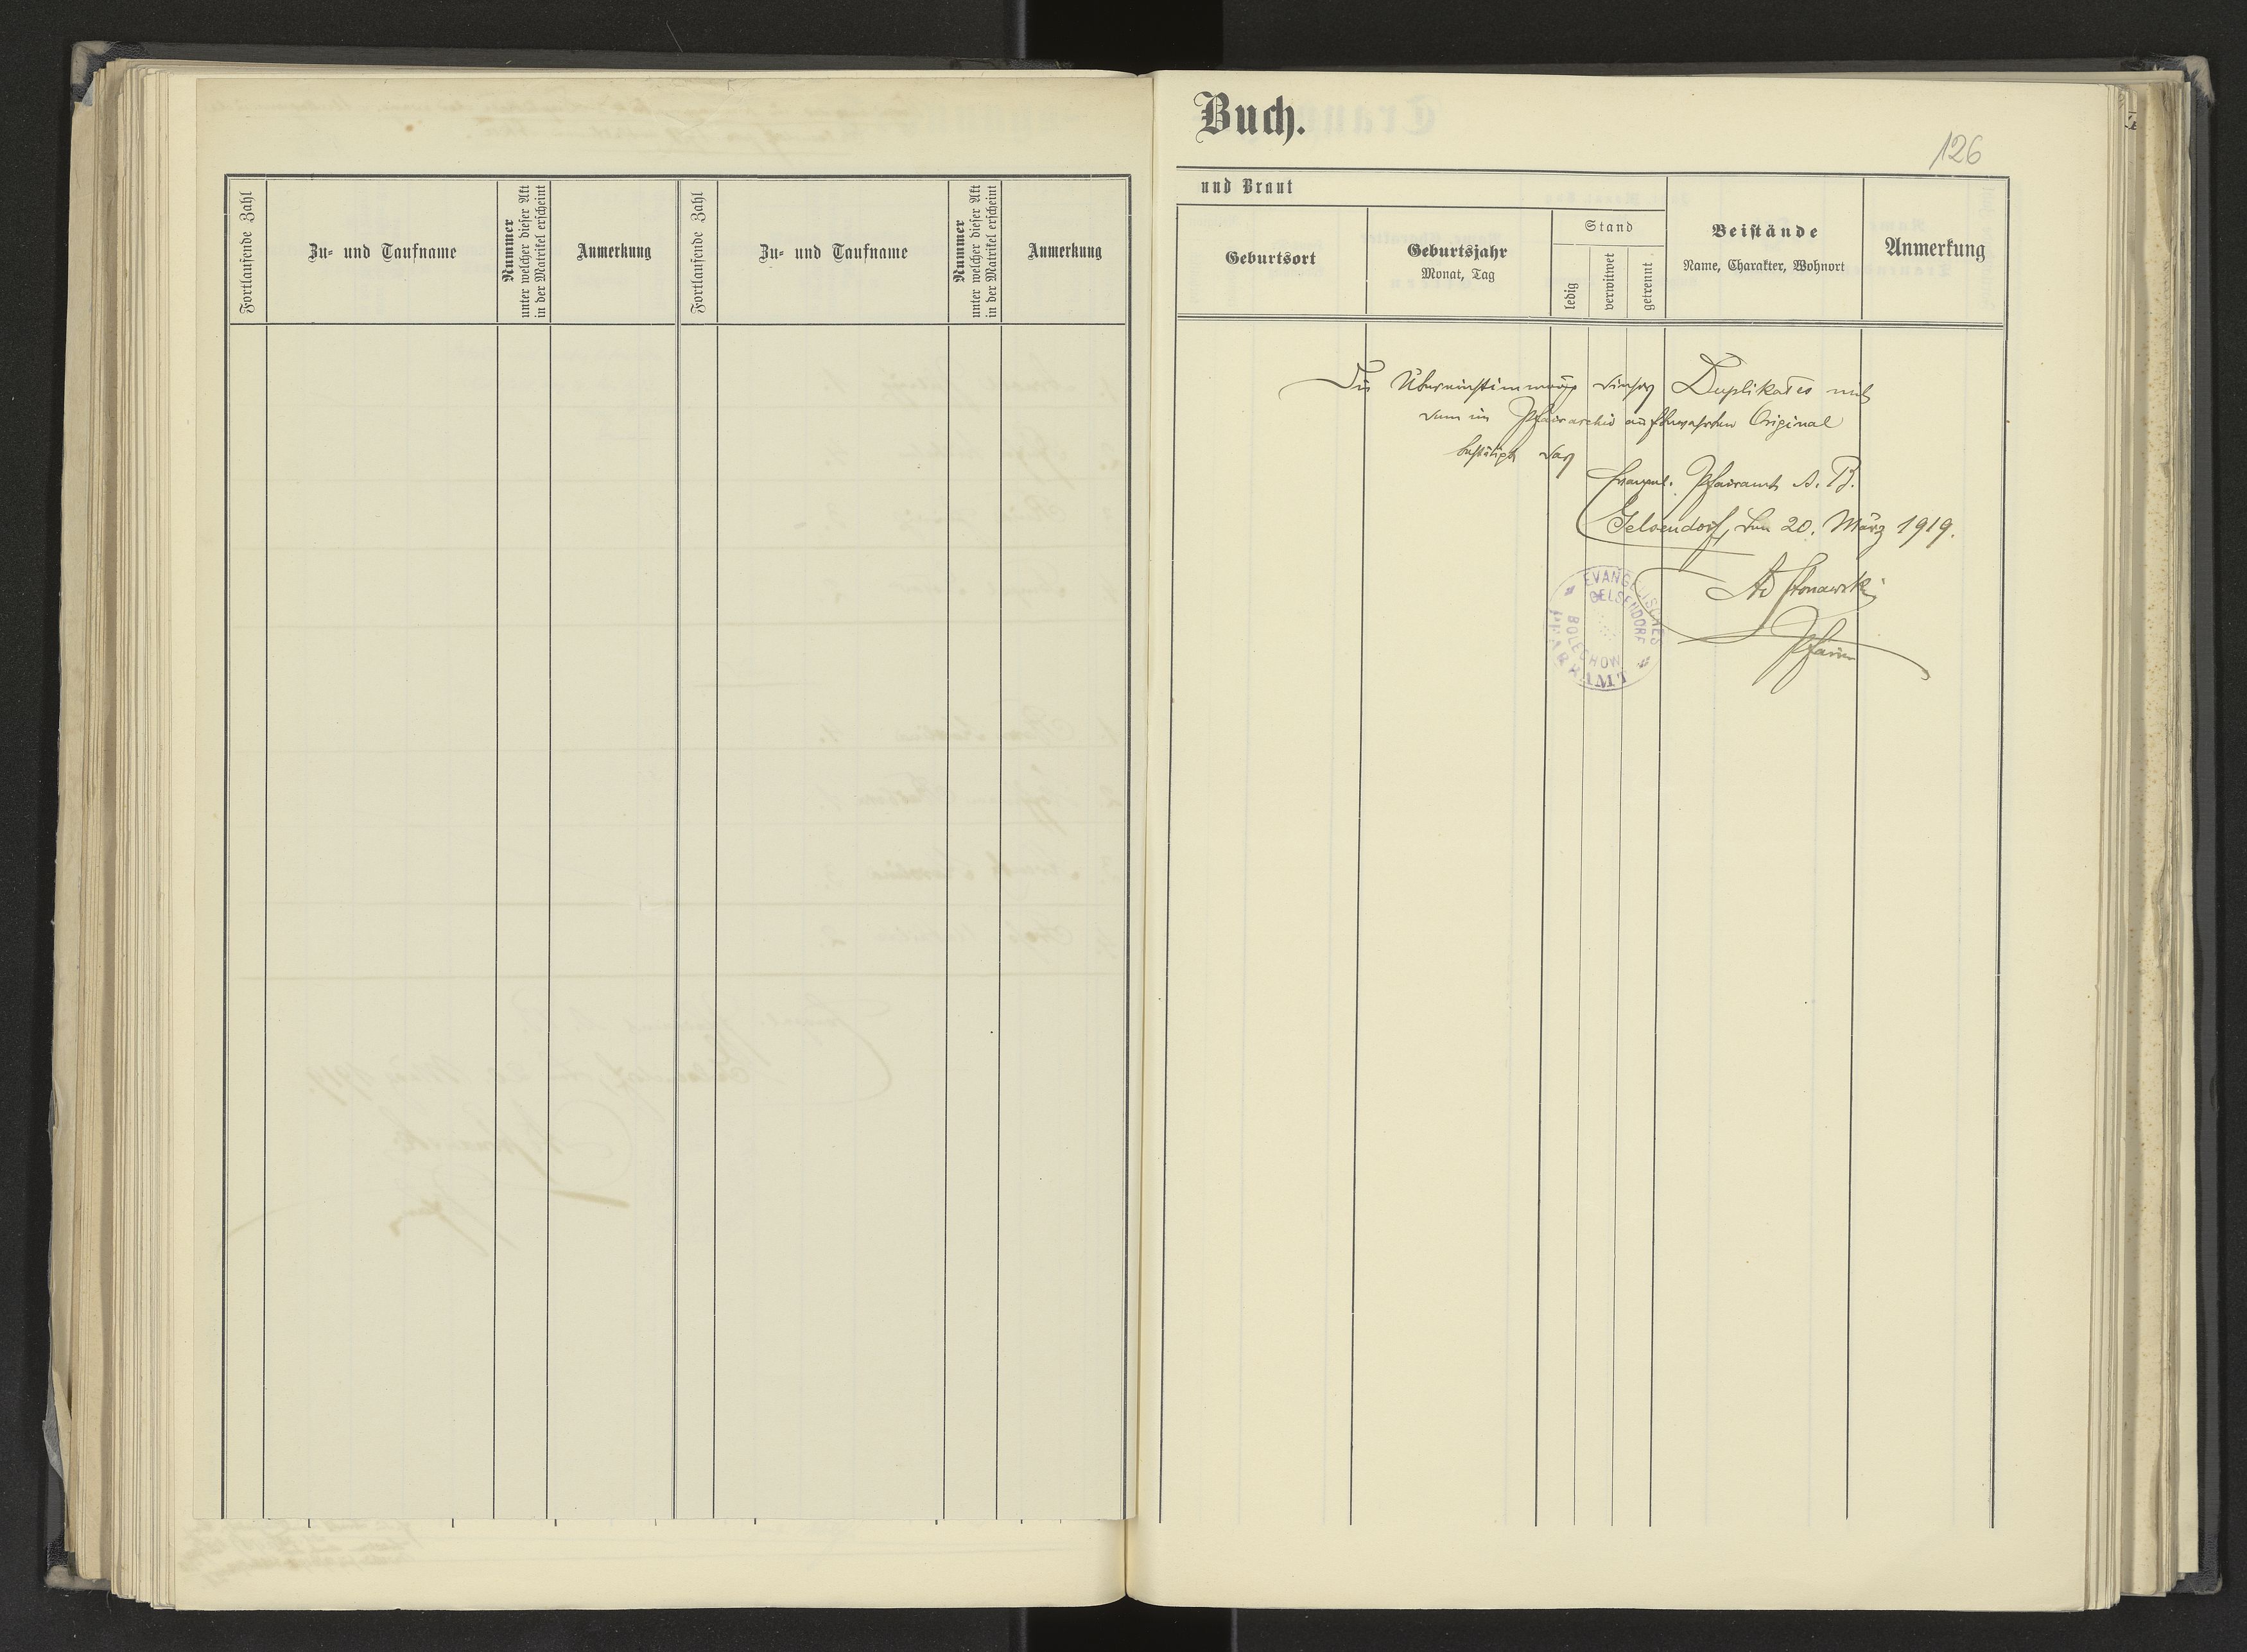 Fortlaufende Zahl
Zu- und Taufname
Nummer
unter welcher dieser Akt
in der Matrikel erscheint
Anmerkung
Fortlaufende Zahl
Zu- und Taufname
Nummer
unter welcher dieser Akt
in der Matrikel erscheint
Anmerkung
Buch.
126
und Braut
Geburtsort
Geburtsjahr
Monat, Tag
Stand
ledig
verwitwet
getrennt
Beistände
Name, Charakter, Wohnort
Anmerkung
Die Übereinstimmung dieses Duplikates mit
dem im Pfarrarchiv aufbewahrten Original
bestätigt das
Evangel. Pfarramt A. B.
Gelsendorf, den 20. März 1919.
Pfarrer
EVANGELISCHES
PFARRAMT
GELSENDORF
BOLECHOW